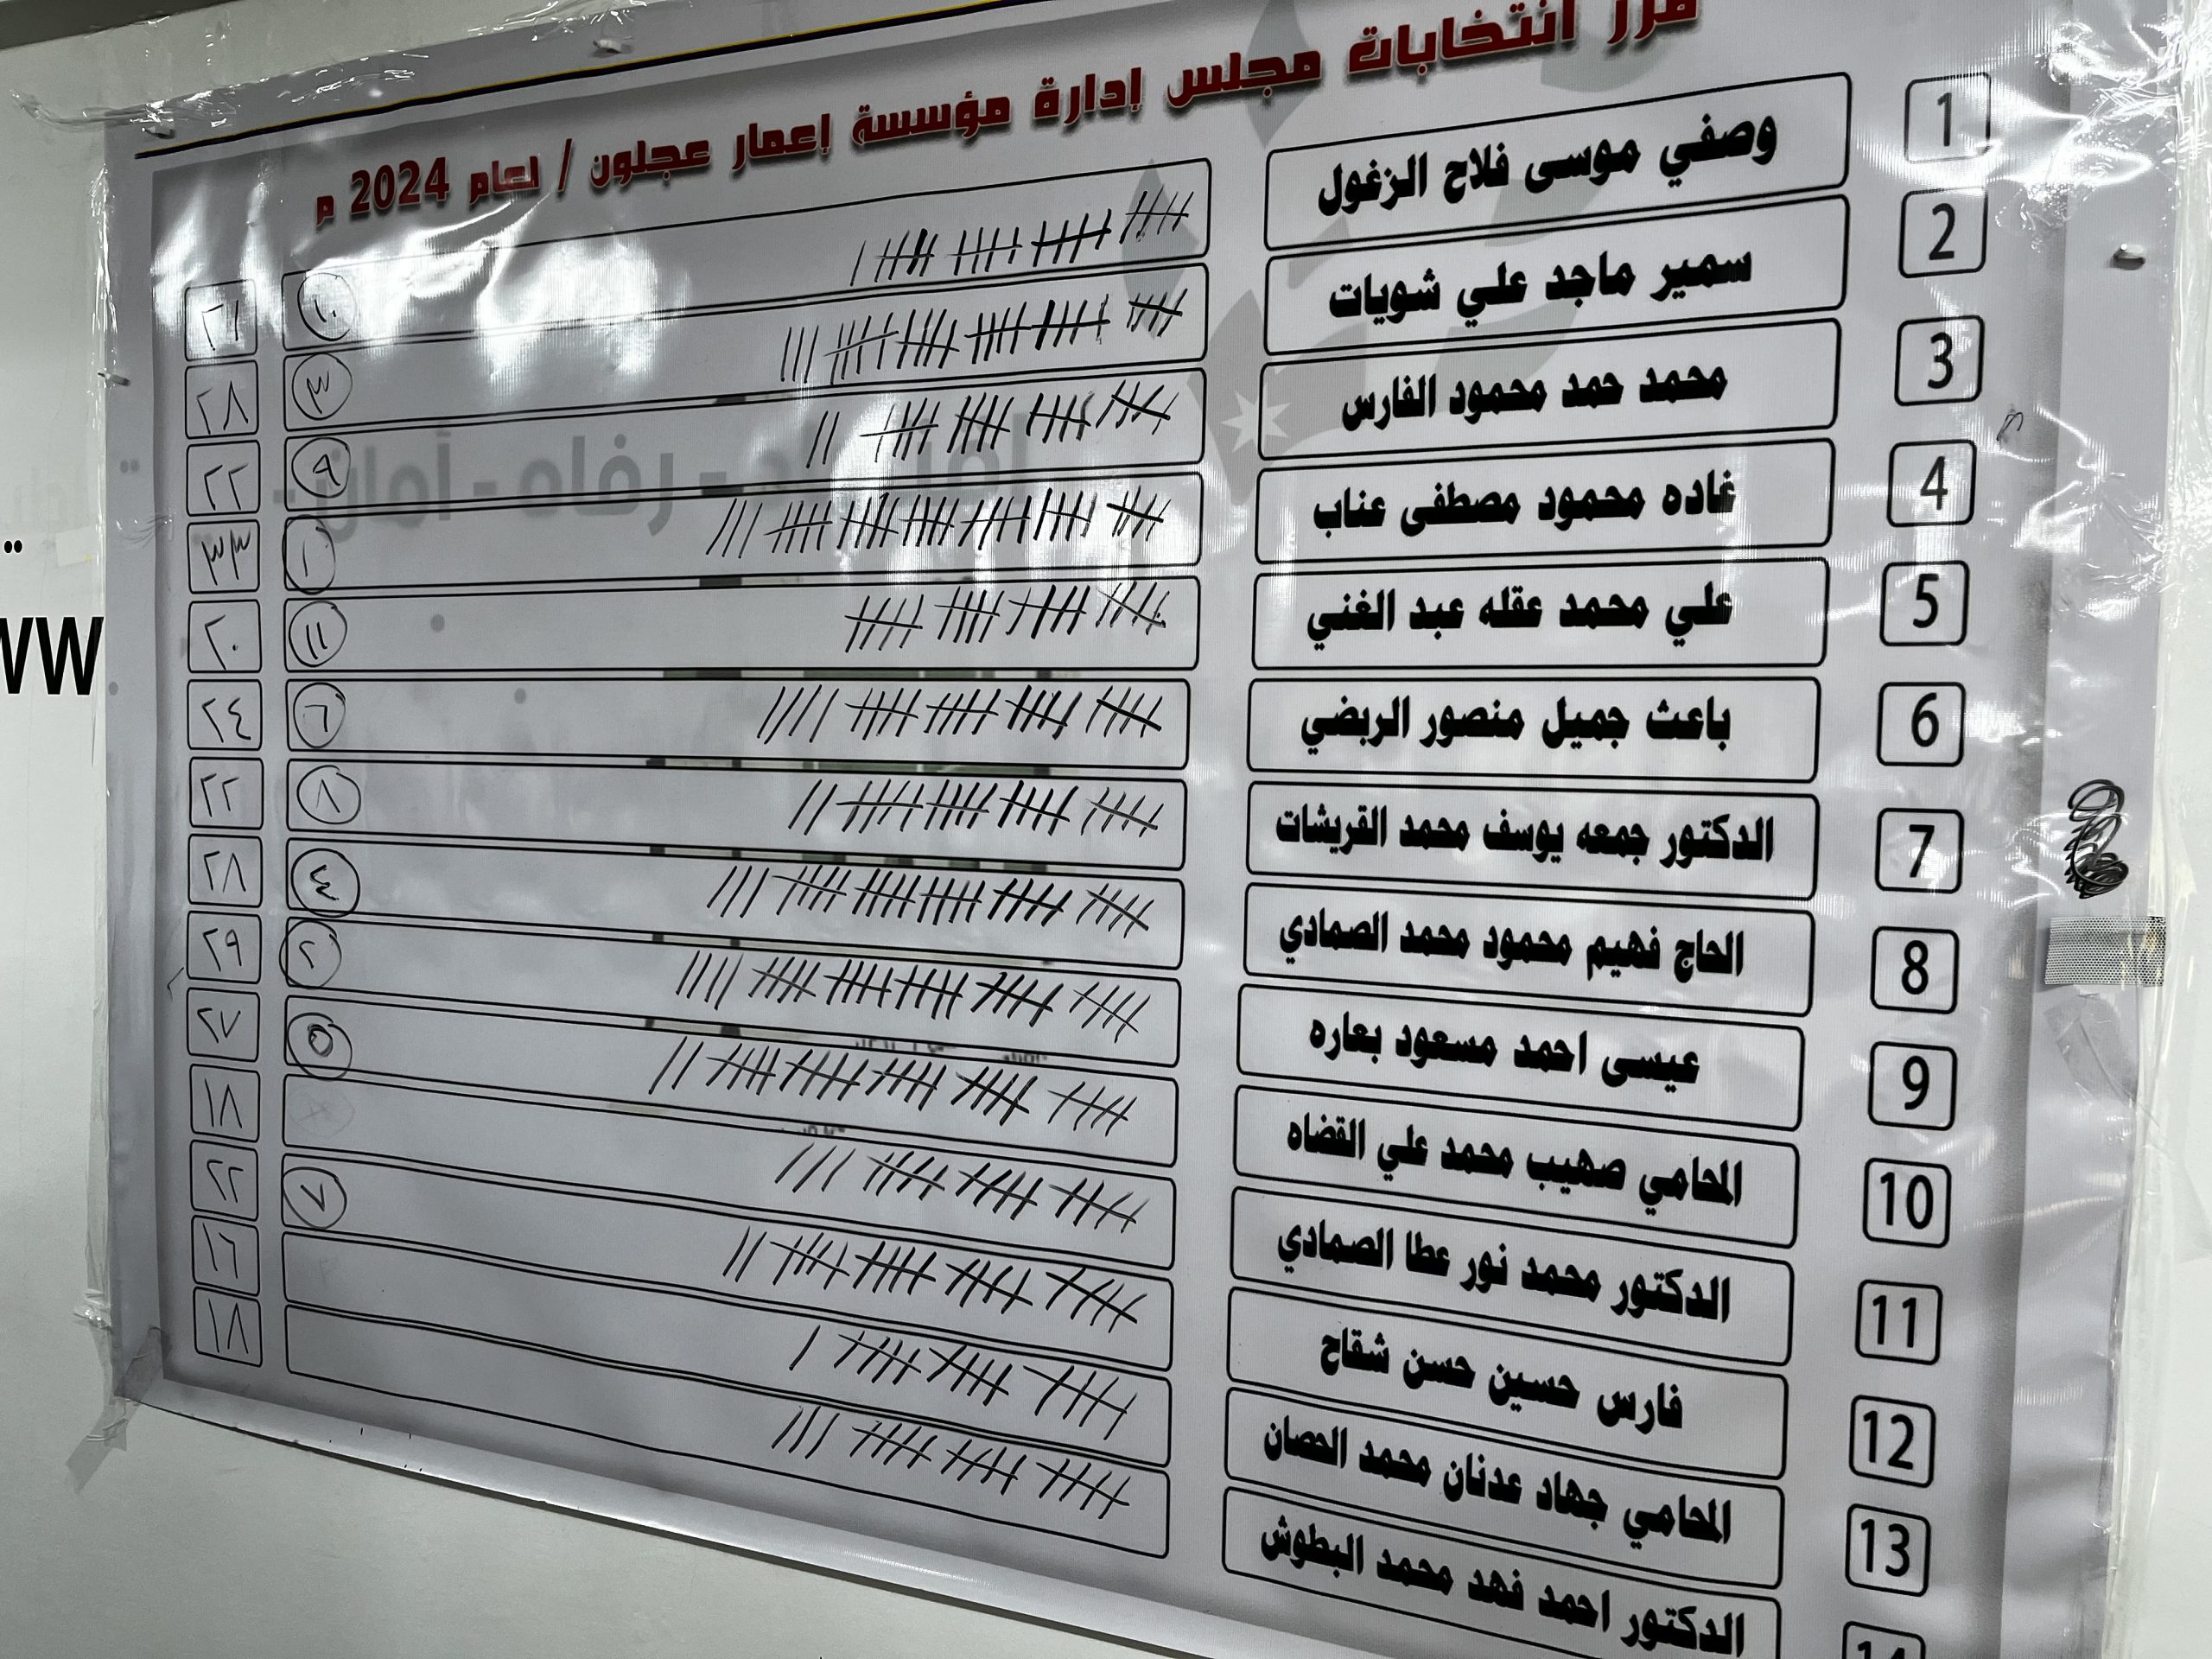 فرز انتخابات مجلس إدارة مؤسسة إعمار عجلون / لعام 2024 م
1 وصفي موسى فلاح الزغول ١٠ ٢١
2 سمير ماجد علي شويات ٣ ٢٨
3 محمد حمد محمود الفارس ٩ ٢٢
4 غاده محمود مصطفى عناب ١ ٣٣
5 علي محمد عقله عبد الغني ١١ ٢٠
6 باعث جميل منصور الربضي ٦ ٢٤
7 الدكتور جمعه يوسف محمد القريشات ٨ ٢٢
8 الحاج فهيم محمود محمد الصمادي ٤ ٢٨
9 عيسى احمد مسعود بعاره ٢ ٢٩
10 المحامي صهيب محمد علي القضاه ٥ ٢٧
11 الدكتور محمد نور عطا الصمادي ١٨
12 فارس حسين حسن شقاح ٧ ٢٢
13 المحامي جهاد عدنان محمد الحصان ١٦
14 الدكتور احمد فهد محمد البطوش ١٨
- رفاه - أمان -
WW